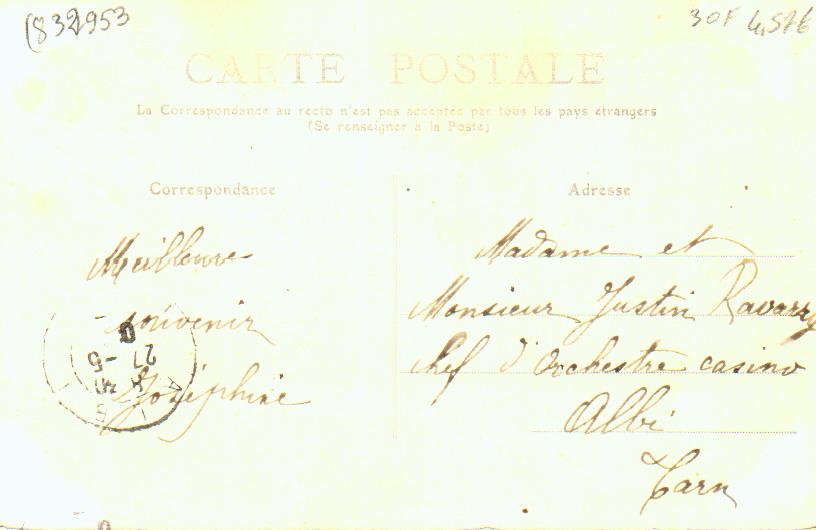 (832953
30F 4,57€
CARTE POSTALE
La Correspondance au recto n'est pas acceptée par tous les pays étrangers
(Se renseigner à la Poste)
Correspondance
Meilleure
souvenir
Joséphine
Adresse
Madame et
Monsieur Justin Ravarry
chef d'Orchestre casino
Albi
Tarn
27 -5